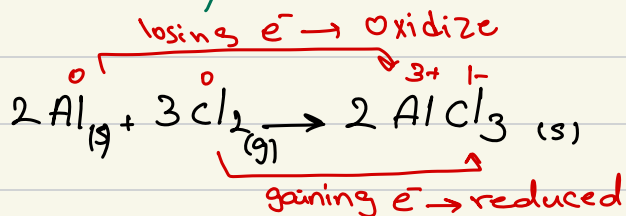 losing e⁻ → Oxidize
0 0 3+ 1-
2 Al(s) + 3 Cl₂(g) → 2 AlCl₃ (s)
gaining e⁻ → reduced